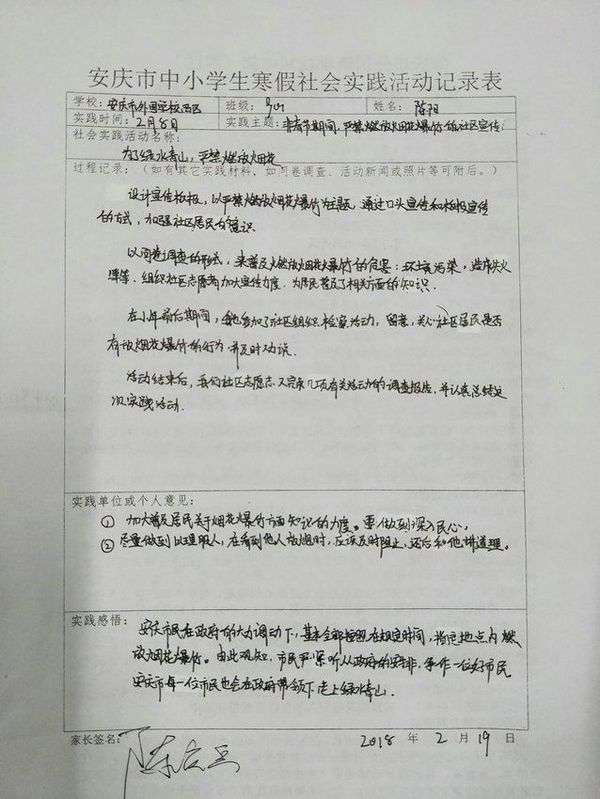 安庆市中小学生寒假社会实践活动记录表
学校: 安庆市外国学校西区 班级: 姓名: 陈阳
实践时间: 2月8日 实践主题: 春节期间,严禁燃放烟花爆竹的社区宣传
社会实践活动名称:
为了绿水青山,严禁燃放烟花
过程记录:(如有其它实践材料,如问卷调查、活动新闻或照片等可附后。)
设计宣传板报,以严禁燃放烟花爆竹为主题,通过口头宣传和板报宣传
的方式,加强社区居民的意识
以问卷调查的形式,来普及燃放烟花爆竹的危害:环境污染,造成失火
等.组织社区志愿者加大宣传力度,为居民普及了相关方面的知识.
在小年前后期间,参加了社区组织检察活动,留意,关心社区居民是否
有放烟花爆竹的行为并及时劝说.
活动结束后,我们社区志愿者又完成几项有关活动的调查报告,并认真总结这
次实践活动.
实践单位或个人意见:
① 加大普及居民关于烟花爆竹方面知识的力度。要做到深入民心,
② 尽量做到以理服人,在看到他人放烟时,应该及时阻止,还后和他讲道理。
实践感悟:
安庆市民在政府的大力调动下,基本全部按照在规定时间,指定地点内燃
放烟花爆竹。由此观知,市民严谨听从政府的安排,争作一位好市民
安庆市每一位市民也会在政府带领下走上绿水青山.
家长签名: 2018 年 2 月 19 日